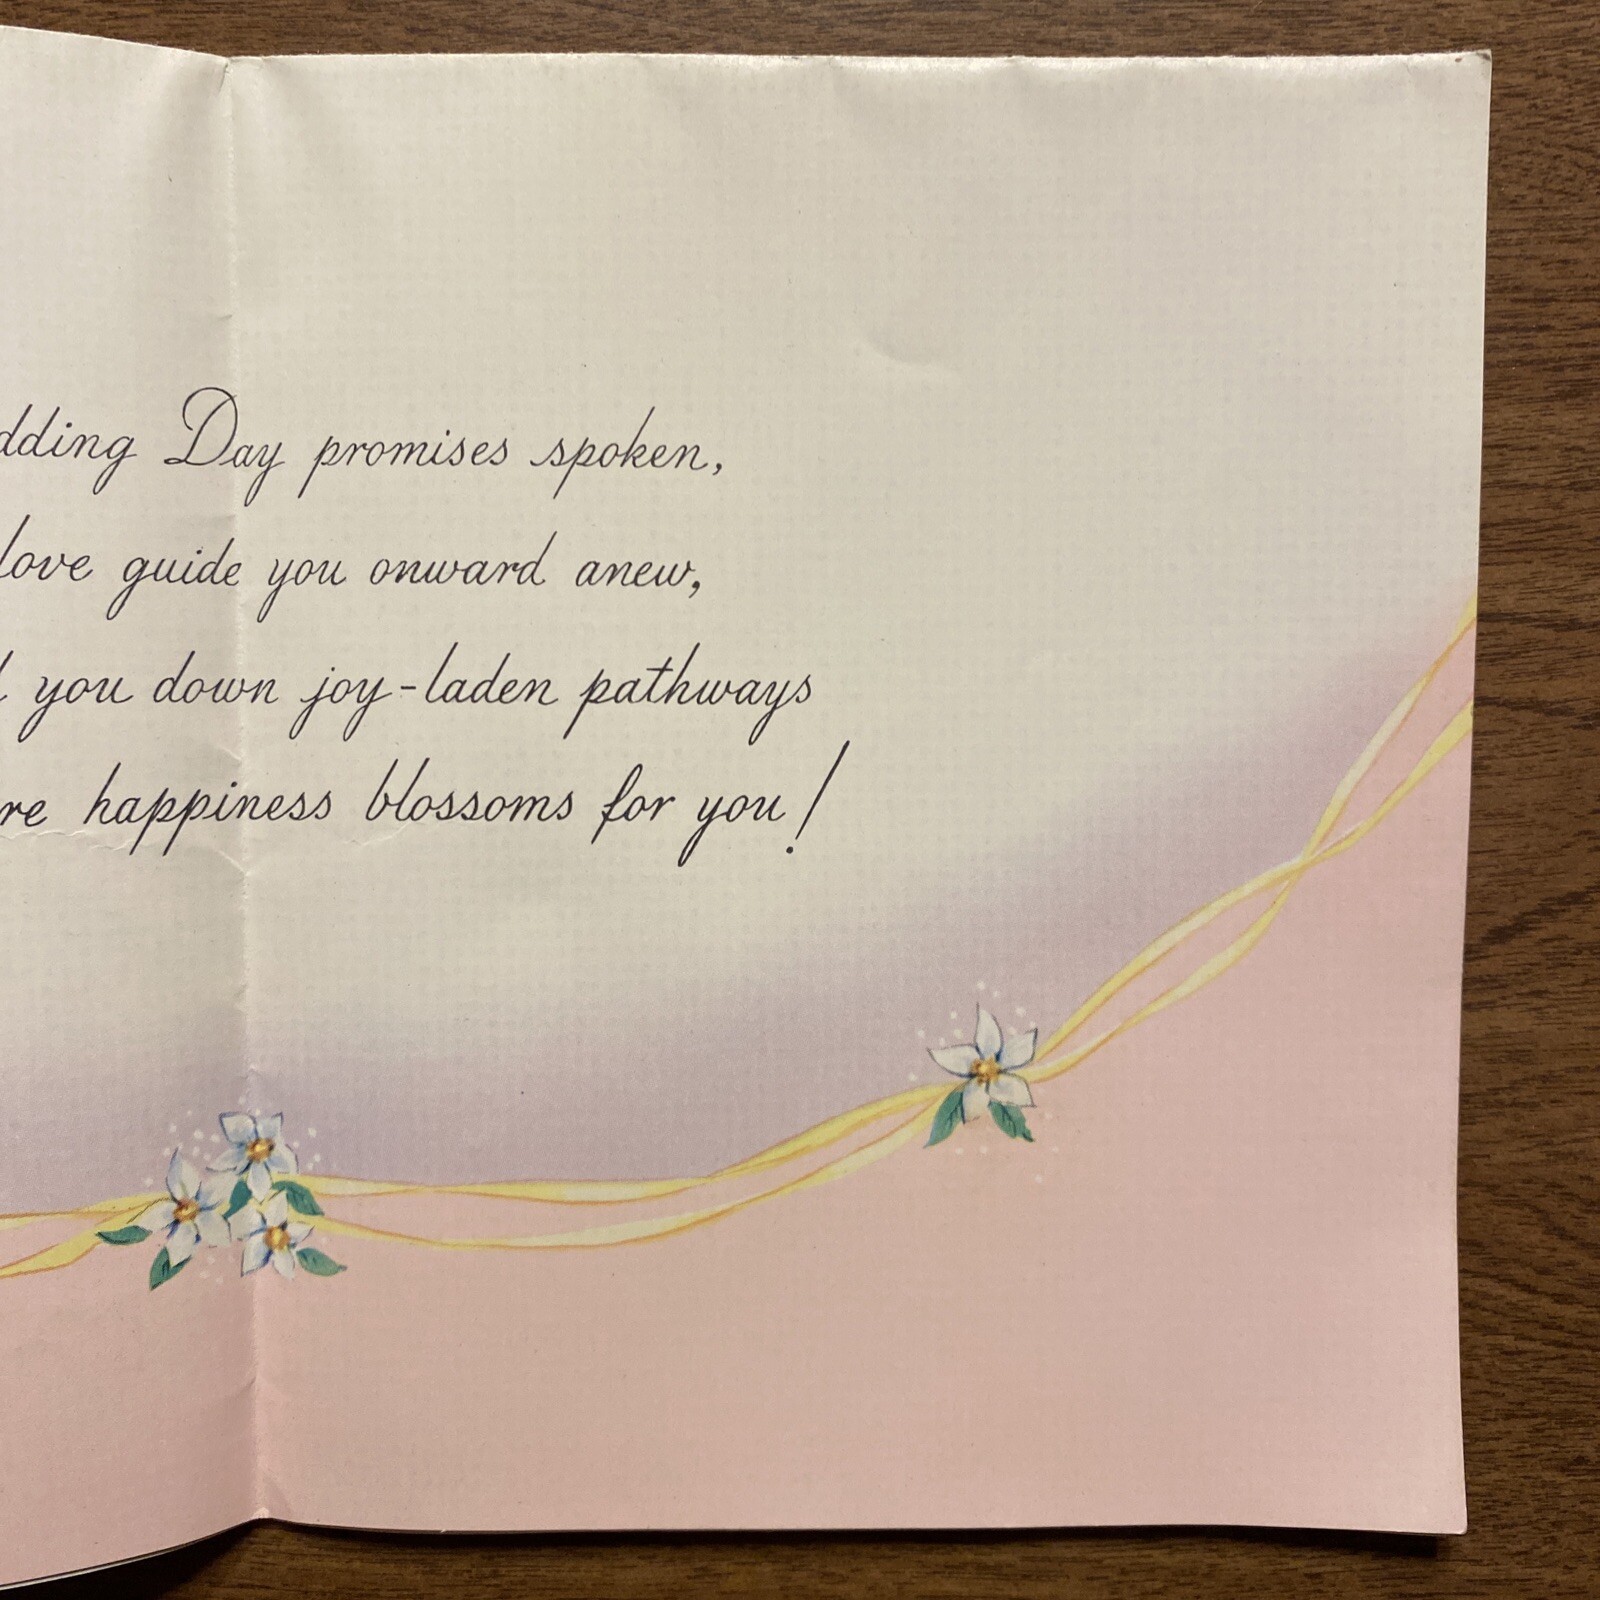 dding Day promises spoken,
love guide you onward anew,
you down joy-laden pathways
re happiness blossoms for you!